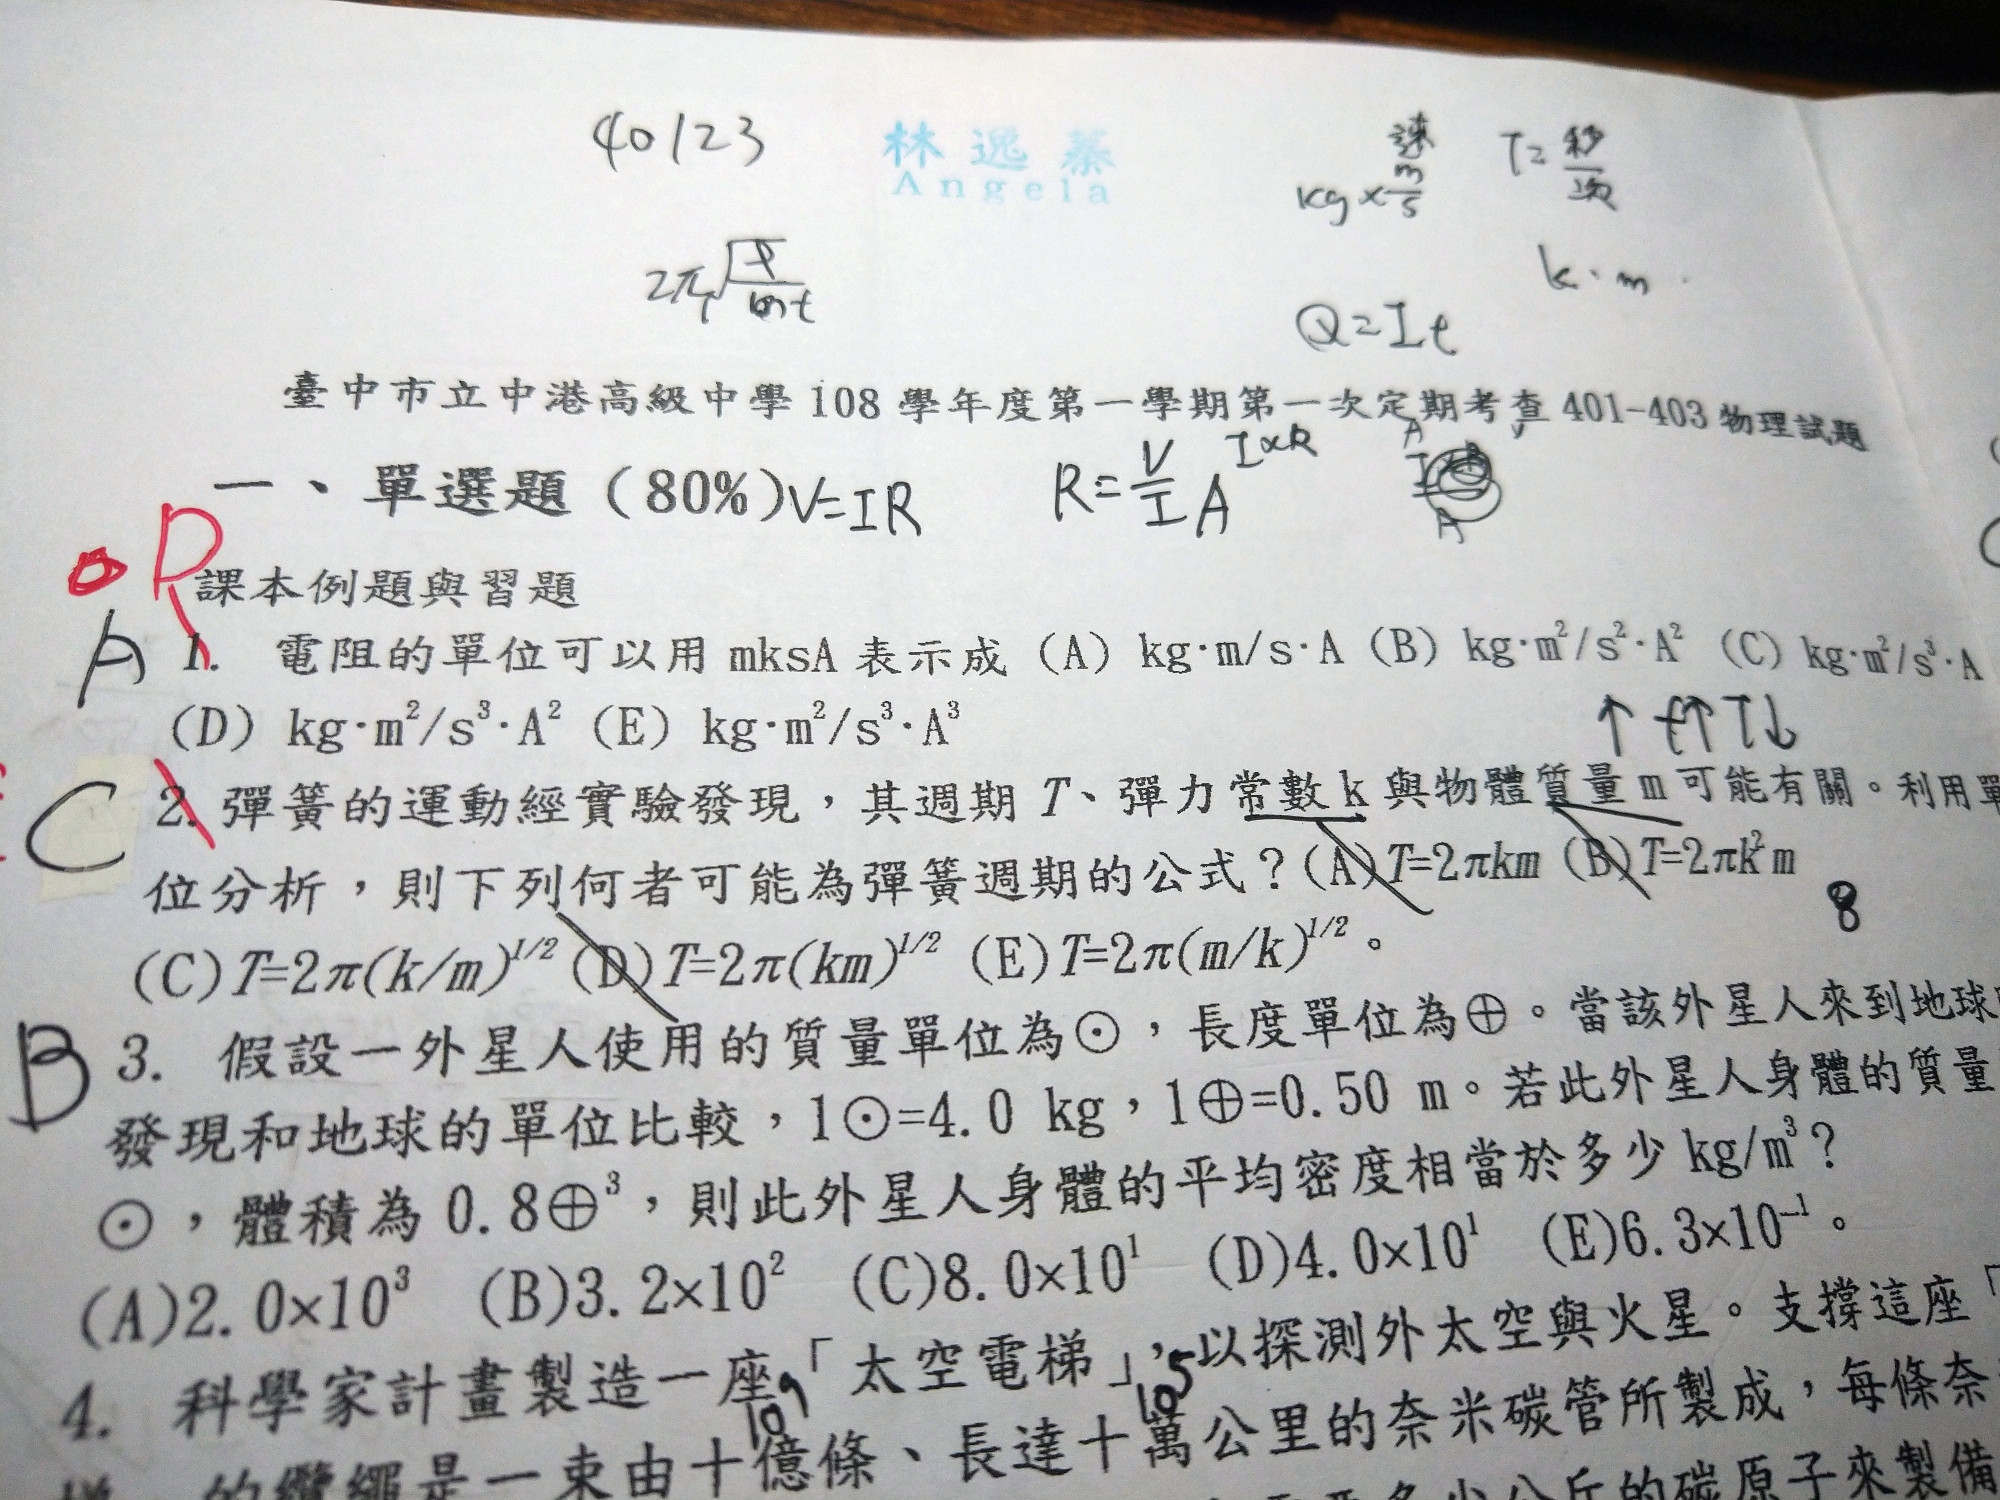 40123
林逸蓁
Angela
速
kg × m/s
T= 秒/次
2π
k·m
Q=It
臺中市立中港高級中學108學年度第一學期第一次定期考查401-403物理試題
一、單選題(80%) V=IR R=V/I A I×R
D
課本例題與習題
A 1. 電阻的單位可以用mksA表示成 (A) kg·m/s·A (B) kg·m²/s²·A² (C) kg·m²/s³·A
(D) kg·m²/s³·A² (E) kg·m²/s³·A³
↑ f↑ T↓
C 2. 彈簧的運動經實驗發現，其週期T、彈力常數k與物體質量m可能有關。利用單
位分析，則下列何者可能為彈簧週期的公式？(A)T=2πkm (B)T=2πk²m
8
(C)T=2π(k/m)^1/2 (D)T=2π(km)^1/2 (E)T=2π(m/k)^1/2。
B 3. 假設一外星人使用的質量單位為⊙，長度單位為⊕。當該外星人來到地球
發現和地球的單位比較，1⊙=4.0 kg，1⊕=0.50 m。若此外星人身體的質量
⊙，體積為0.8⊕³，則此外星人身體的平均密度相當於多少kg/m³？
(A)2.0×10³ (B)3.2×10² (C)8.0×10¹ (D)4.0×10¹ (E)6.3×10⁻¹。
4. 科學家計畫製造一座「太空電梯」，以探測外太空與火星。支撐這座「
10⁹ 10⁵
的纜繩是一束由十億條、長達十萬公里的奈米碳管所製成，每條奈
多少公斤的碳原子來製備